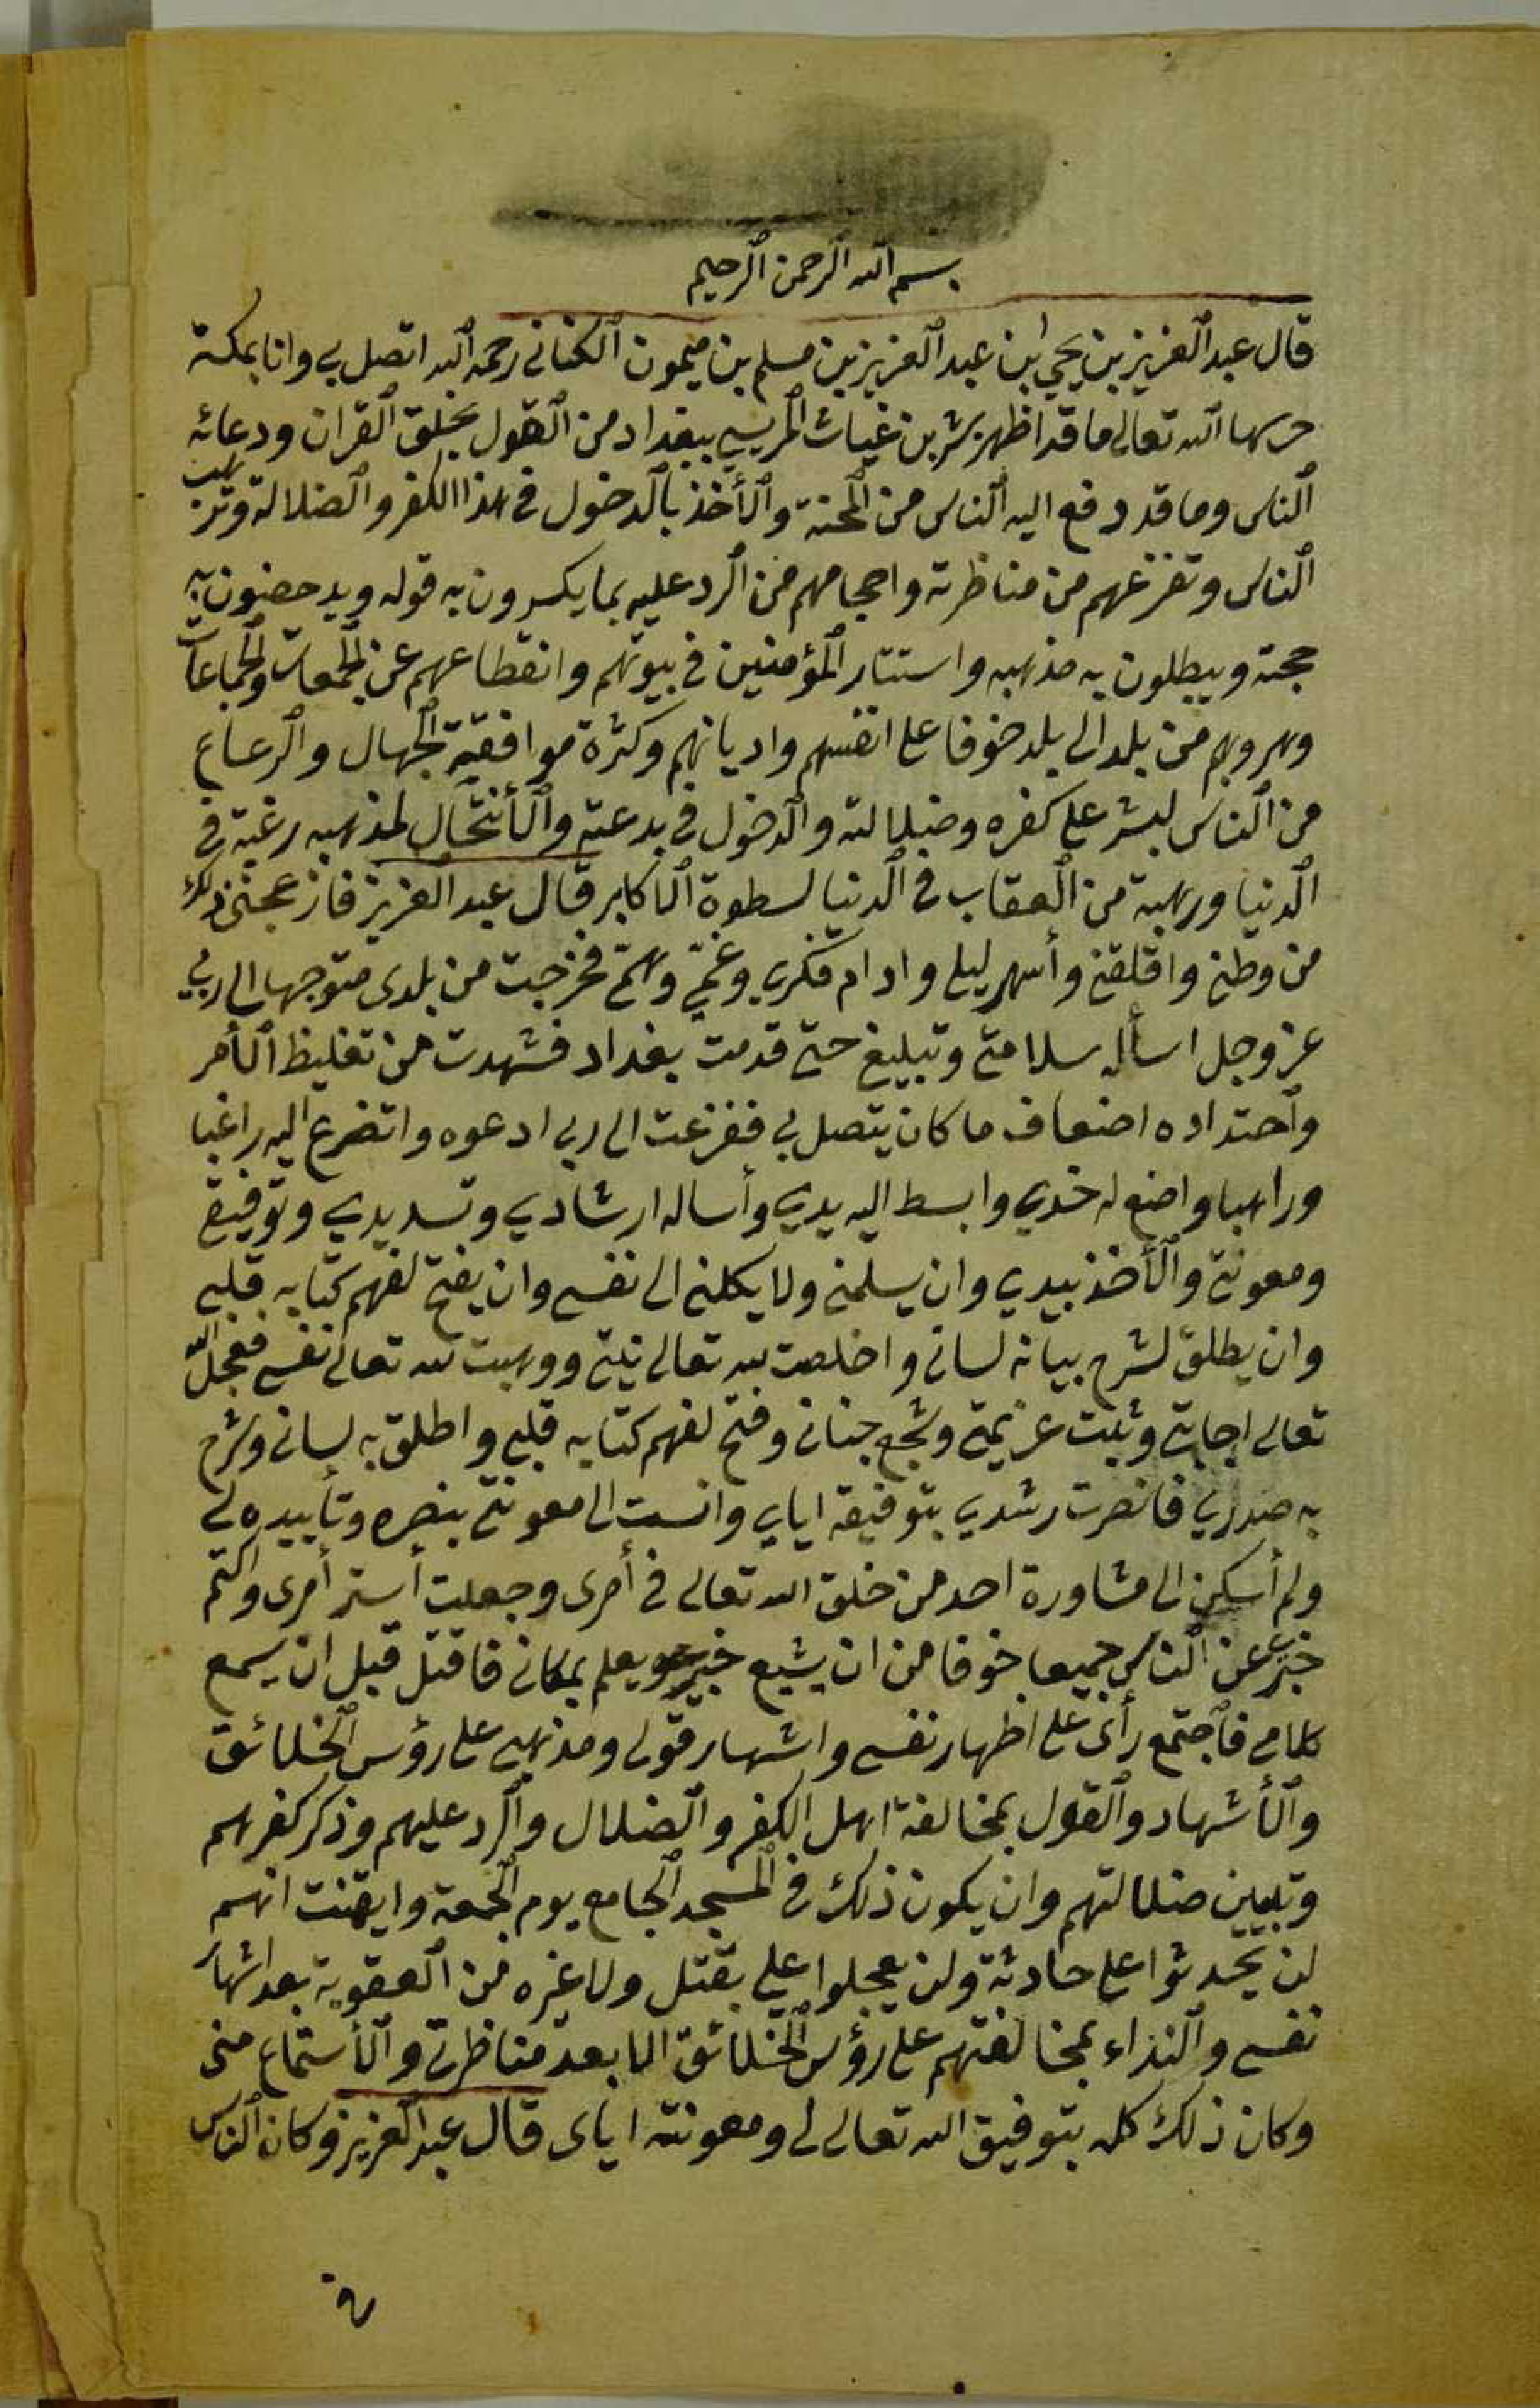 بسم الله الرحمن الرحيم
قال عبد العزيز بن يحيى ابن عبد العزيز بن مسلم بن ميمون الكناني رحمه الله اتصل بي وانا بمكة
حرسها الله تعالى ما قد اظهر بشر بن غياث المريسي ببغداد من القول بخلق القران ودعائه
الناس وما قد دفع اليه الناس من المحنة والأخذ بالدخول في هذا الكفر والضلالة وترهيب
الناس وتفزعهم من مناظرته واحجامهم من الرد عليه بما يكسرون به قوله ويدحضون به
حجته ويبطلون به مذهبه واستتار المؤمنين في بيوتهم وانقطاعهم عن الجمعات والجماعات
وهروبهم من بلد الى بلد خوفا على انفسهم واديانهم وكثرة موافقة الجهال والرعاع
من الناس لبشر على كفره وضلالته والدخول في بدعته والأنتحال لمذهبه رغبة في
الدنيا ورهبة من العقاب في الدنيا لسطوة الاكابر قال عبد العزيز فازعجني ذلك
من وطني واقلقني وأسهر ليلي وادام فكري وغمي وهمي فخرجت من بلدى متوجها الى ربي
عز وجل اسأله سلامتي وتبليغي حتى قدمت بغداد فشهدت من تغليظ الأمر
واحتداده اضعاف ما كان يتصل بي ففزعت الى ربي ادعوه واتضرع اليه راغبا
وراهبا واضع له خدي وابسط اليه يدي وأساله ارشادي وتسديدي وتوفيقي
ومعونتي والأخذ بيدي وان يسلمني ولا يكلني الى نفسي وان يفتح لفهم كتابه قلبي
وان يطلق لشرح بيانه لساني واخلصت لله تعالى نيتي ووهبت لله تعالى نفسي فعجل الله
تعالى اجابتي وثبت عزيمتي وشجع جناني وفتح لفهم كتابه قلبي واطلق به لساني وشرح
به صدري فانصرت رشدي بتوفيقه اياي وانست الى معونتي بنصره وتأييده لي
ولم أسكن الى مشاورة احد من خلق الله تعالى في أمرى وجعلت أستر أمرى واكتم
خبري عن الناس جميعا خوفا من ان يشيع خبري ويعلم بمكاني فاقتل قبل ان يسمع
كلامي فأجتمع رأى على اظهار نفسي واشهار قولي ومذهبي على رؤس الخلائق
والأشهاد والقول بمخالفة اهل الكفر والضلال والرد عليهم وذكر كفرهم
وتبيين ضلالتهم وان يكون ذلك في المسجد الجامع يوم الجمعة وايقنت انهم
لن يحدثوا على حادثة ولن يعجلوا علي بقتل ولا غيره من العقوبة بعد اشهار
نفسي والنداء بمخالفتهم على رؤس الخلائق الا بعد مناظرتي والأستماع منى
وكان ذلك كله بتوفيق الله تعالى لي ومعونته اياى قال عبد العزيز وكان الناس